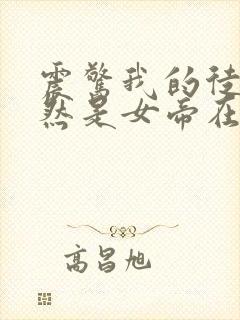 震惊我的徒
然是女帝在
高昌旭